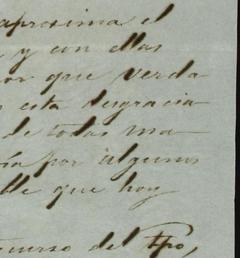 aproxima el
y con ellas
or que verda-
esta desgracia-
de todas ma-
ía por algunos
lle que hoy
curso del tpo,